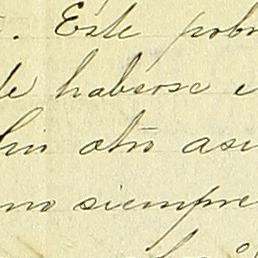 . Este pobr
de haberse e
Sin otro asu
mo siempre